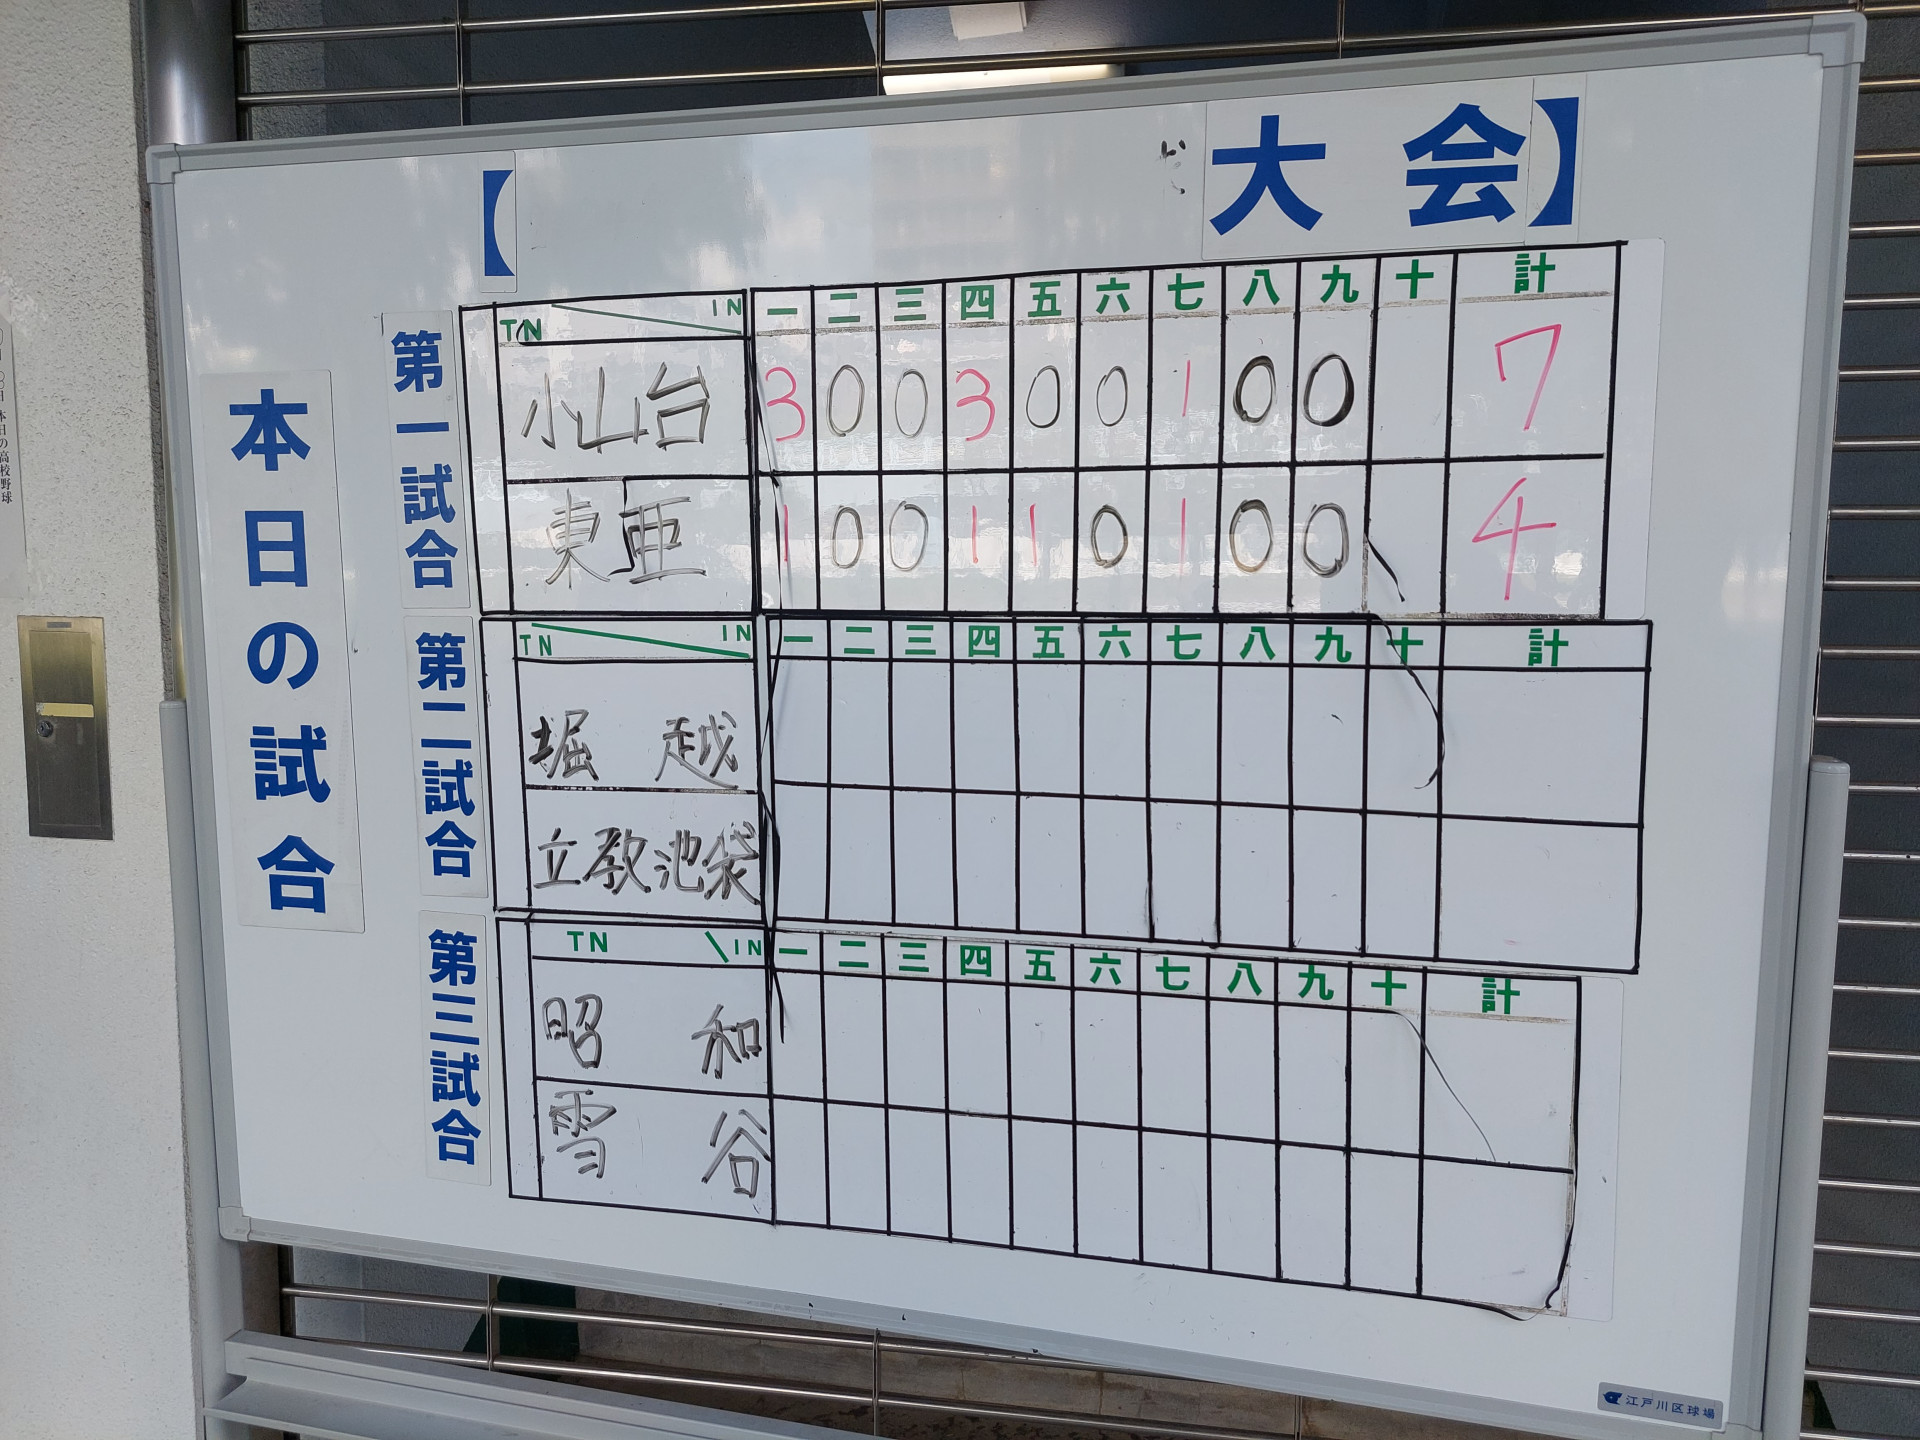 【 大会】
本日の試合
第一試合
TN IN 一 二 三 四 五 六 七 八 九 十 計
小山台 3 0 0 3 0 0 1 0 0 7
東亜 1 0 0 1 1 0 1 0 0 4
第二試合
TN IN 一 二 三 四 五 六 七 八 九 十 計
堀越
立教池袋
第三試合
TN IN 一 二 三 四 五 六 七 八 九 十 計
昭和
雪谷
江戸川区球場